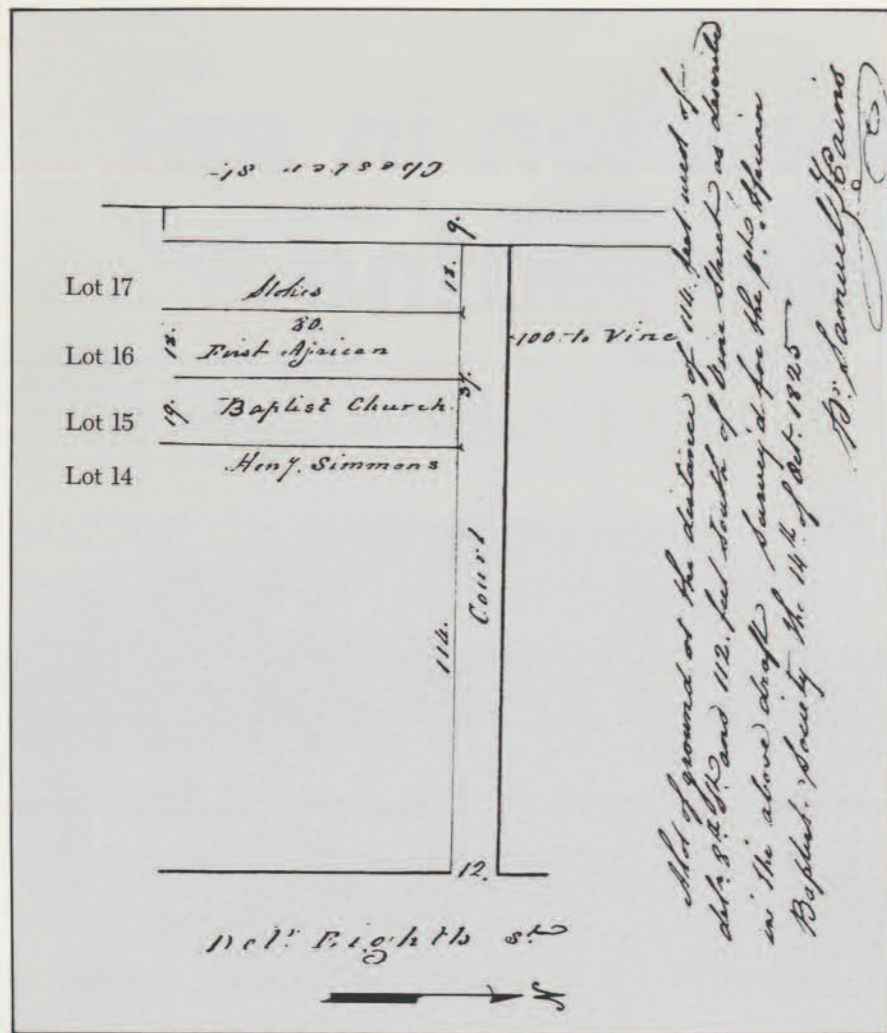 Chester St
9.
Lot 17
Stokes
18.
80.
Lot 16
18.
First African
100 to Vine
37.
Lot 15
19.
Baptist Church
Lot 14
Heny. Simmons
Court
114.
12.
Delr. Eighth St
N
A lot of ground at the distance of 114. feet west of
delr. 8th St. and 112. feet south of Vine Street as described
in the above draft Survey'd for the 1st. African
Baptist. Society the 14th of Oct. 1825
By Samuel Hains